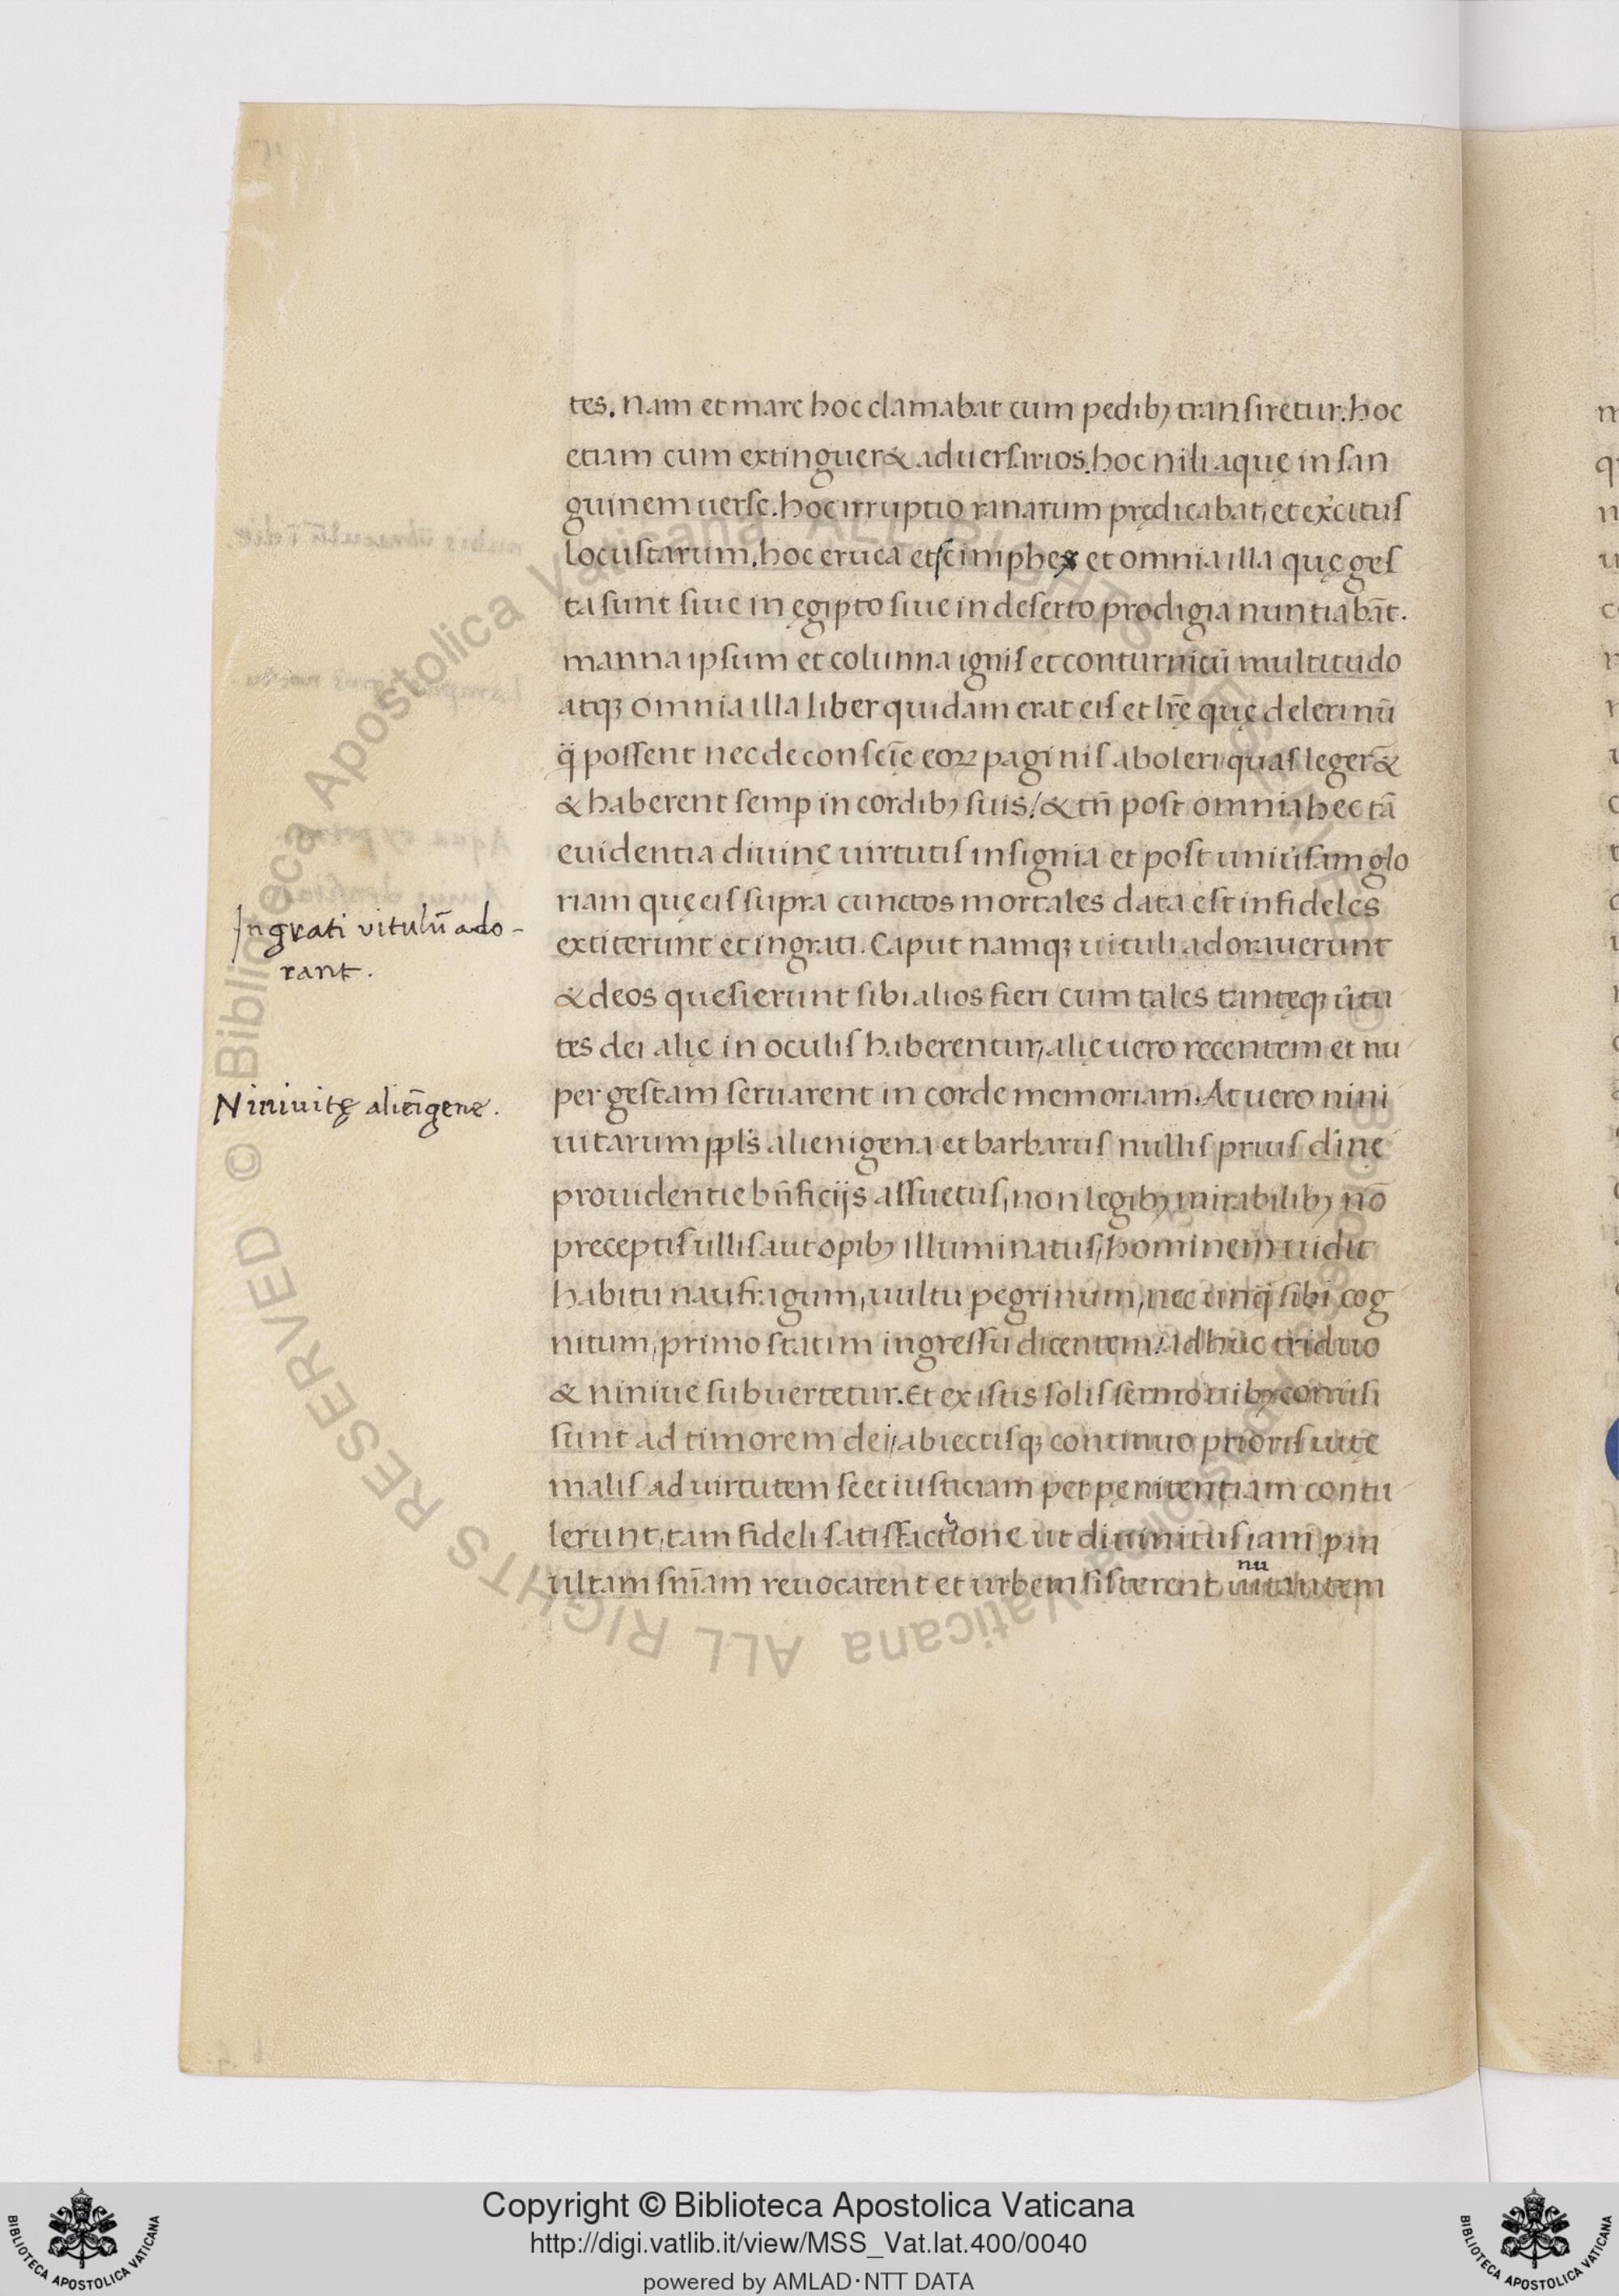 tes. Nam et mare hoc clamabat cum pedibꝫ transiretur. hoc
etiam cum extinguer& aduersarios. hoc nili aquę in san
guinem uerse. hoc irruptio ranarum prędicabat, et exͥcitus
locustarum, hoc eruca et sciniphes et omnia illa quę ges
ta sunt siue in ęgipto siue in deserto prodigia nuntiabāt.
manna ipsum et colunna ignis et conturnicū multitudo
atqꝫ omnia illa liber quidam erat eis et lr̄ę quę deleri nū
q̄ possent nec de conscię̄ eoꝝ paginis aboleri quas leger&
& haberent semp in cordibꝫ suis. & tn̄ post omnia hec tā
euidentia diuinę uirtutis insignia et post uniu̓sam glo
riam quę eis supra cunctos mortales data est infideles
Ingrati vitulū ado-
rant.
extiterunt et ingrati. Caput namqꝫ uituli adorauerunt
& deos quesierunt sibi alios fieri cum tales tantęqꝫ u̓tu
tes dei alię in oculis haberentur, alię uero recentem et nu
Niniuitę aliēigene.
per gestam seruarent in corde memoriam. At uero nini
uitarum ppl̓s alienigena et barbarus nullis prius diīnę
prouidentie bn̄ficijs assuetus, non legibꝫ mirabilibꝫ nō
preceptis ullis aut opibꝫ illuminatus, hominem uidit
habitu naufragum, uultu pegrinum, nec unq̄ sibi cog
nitum, primo statim ingressu dicentem: adhuc triduo
& niniue subuertetur. Et ex istis solis sermonibꝫ conuersi
sunt ad timorem dei, abiectisqꝫ continuo prioris uitę
malis ad uirtutem se et iusticiam per pęnitentiam contu
lerunt, tam fideli satisfactione ut diuinitus iam pin
nu
ultam snīam reuocarent et urbem sisterent uitantem
© Biblioteca Apostolica Vaticana ALL RIGHTS RESERVED
Copyright © Biblioteca Apostolica Vaticana
http://digi.vatlib.it/view/MSS_Vat.lat.400/0040
powered by AMLAD·NTT DATA
BIBLIOTECA APOSTOLICA VATICANA
BIBLIOTECA APOSTOLICA VATICANA